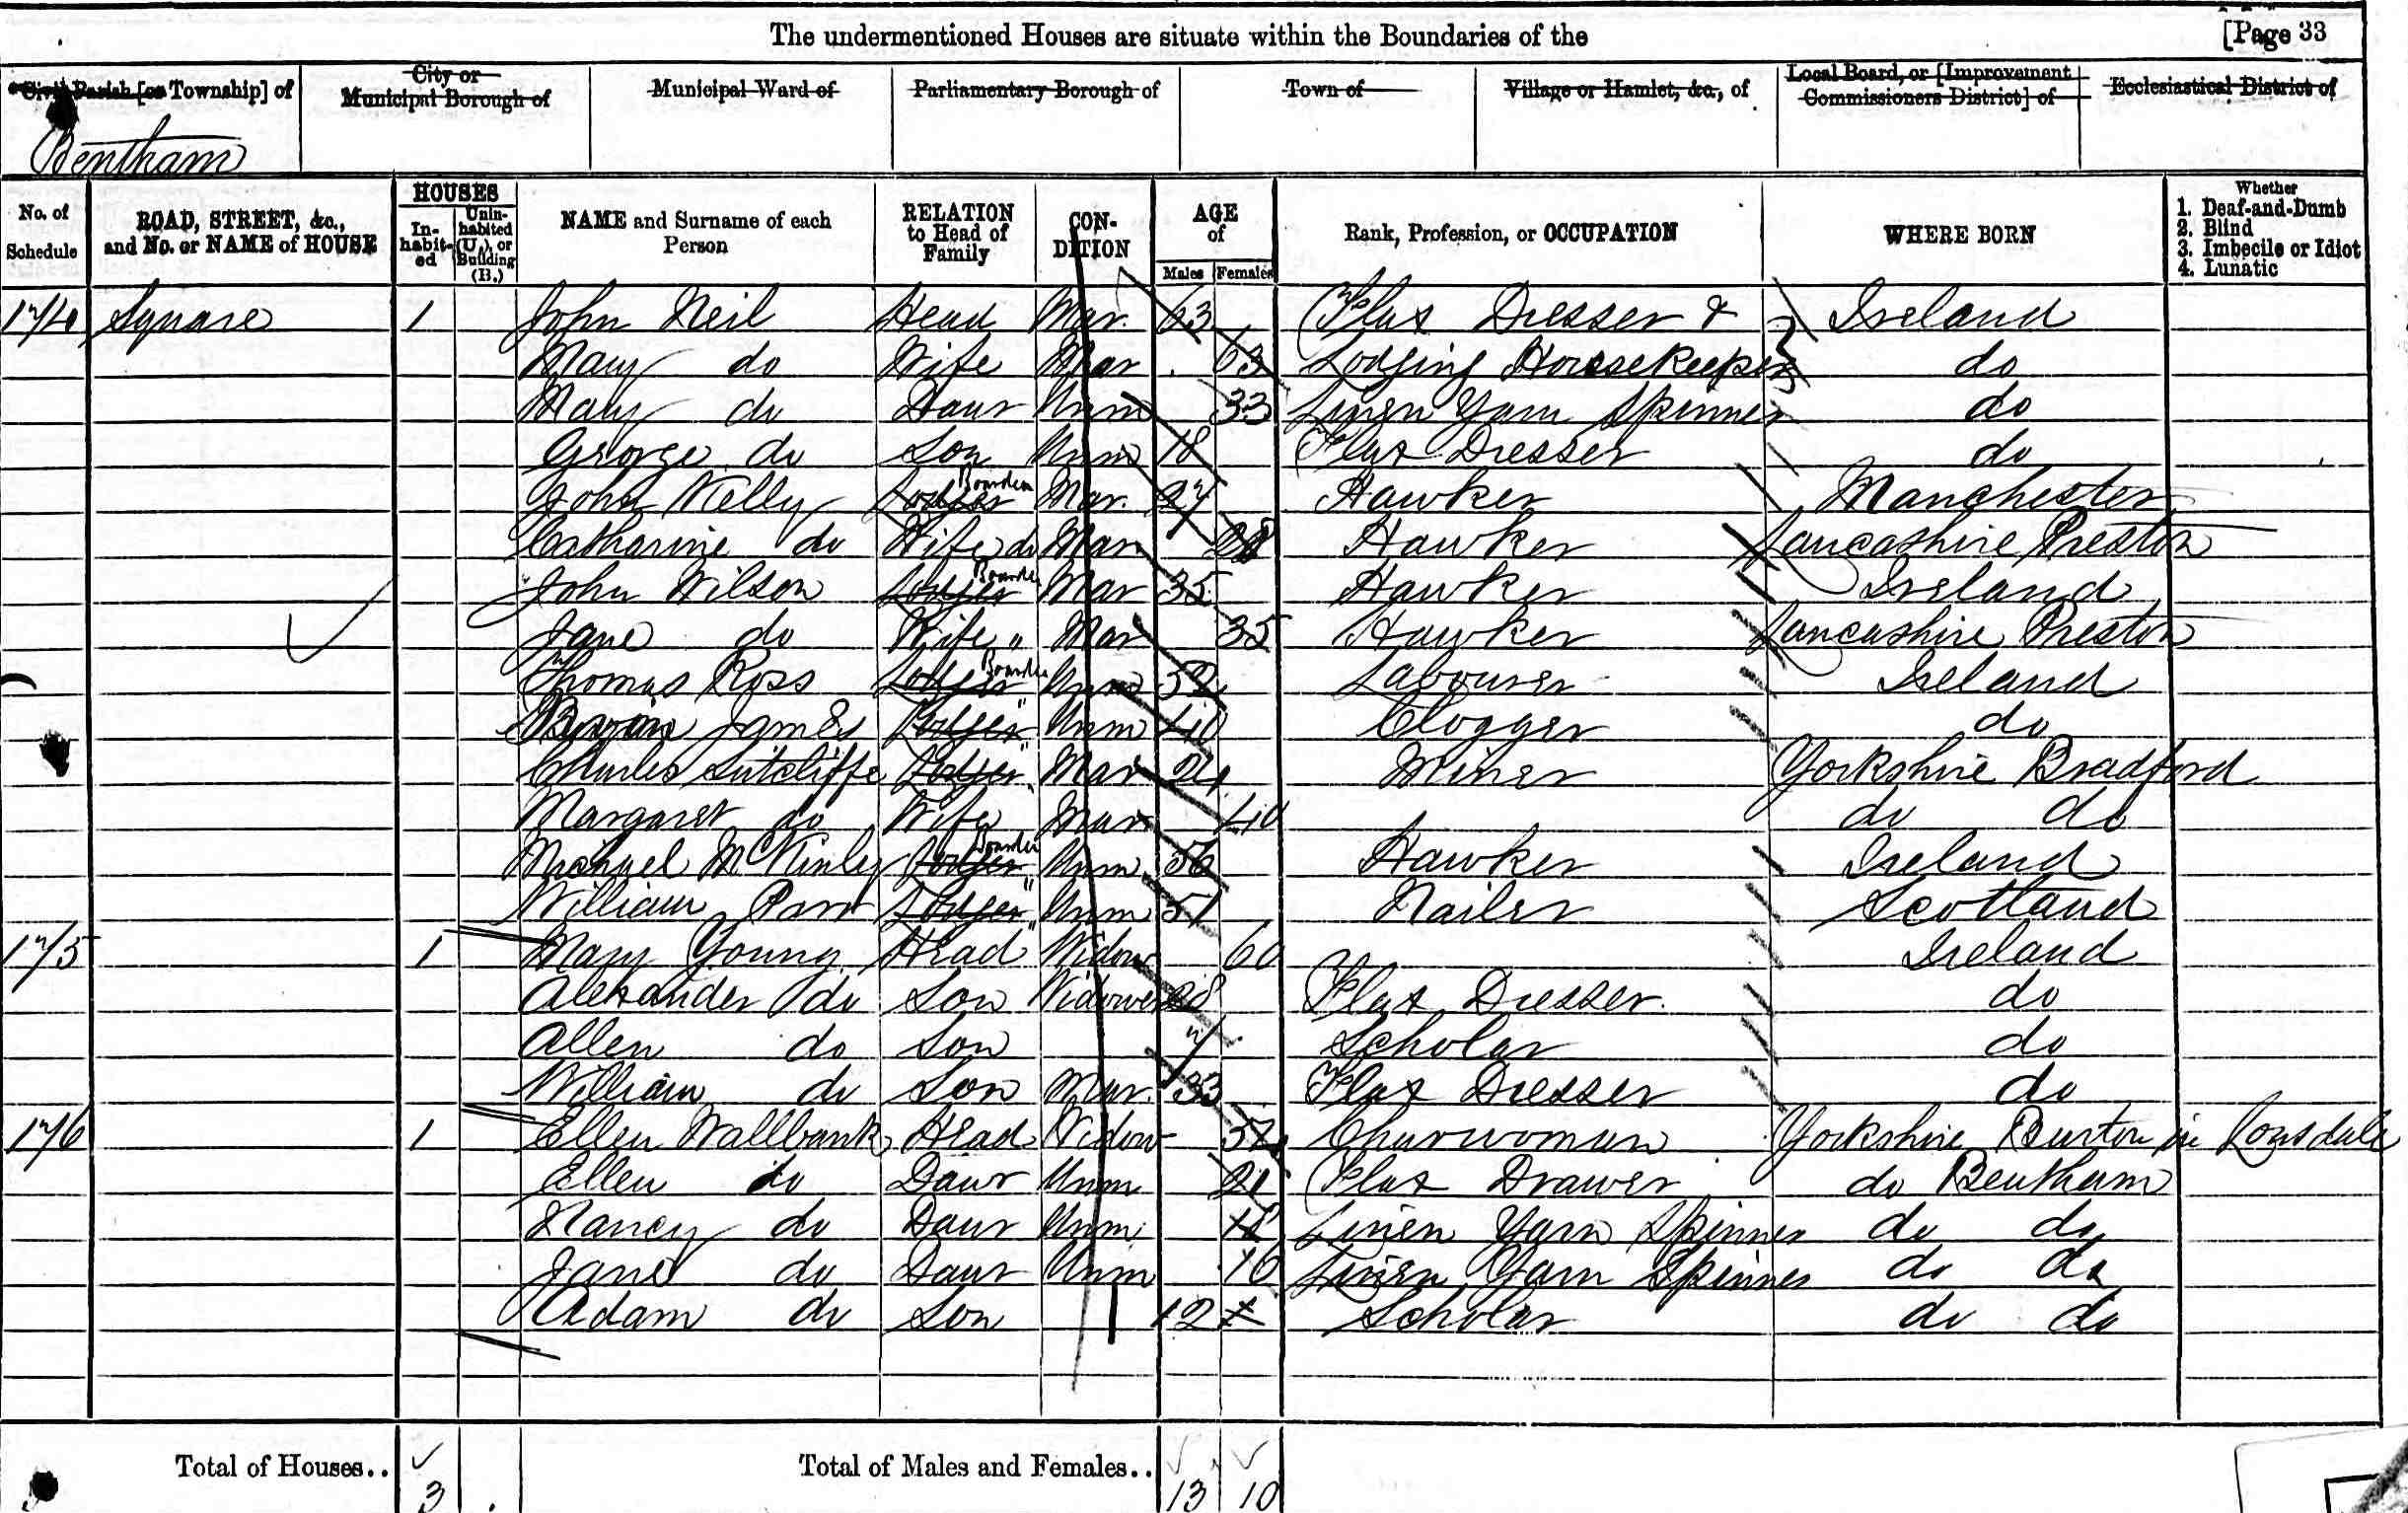 The undermentioned Houses are situate within the Boundaries of the [Page 33
Civil Parish [or Township] of City or Municipal Borough of Municipal Ward of Parliamentary Borough of Town of Village or Hamlet, &c., of Local Board, or [Improvement Commissioners District] of Ecclesiastical District of
Bentham
No. of Schedule ROAD, STREET, &c., and No. or NAME of HOUSE HOUSES Inhabited Uninhabited (U.), or Building (B.) NAME and Surname of each Person RELATION to Head of Family CONDITION AGE of Males Females Rank, Profession, or OCCUPATION WHERE BORN Whether 1. Deaf-and-Dumb 2. Blind 3. Imbecile or Idiot 4. Lunatic
174 Square 1 John Neil Head Mar. 63 Flax Dresser & Ireland
Mary do Wife Mar 63 Lodging Housekeeper do
Mary do Daur Unm 33 Linen Yarn Spinner do
George do Son Unm 18 Flax Dresser do
John Kelly Lodger Boarder Mar. 27 Hawker Manchester
Catharine do Wife do Mar 28 Hawker Lancashire Preston
John Wilson Lodger Boarder Mar 35 Hawker Ireland
Jane do Wife " Mar 35 Hawker Lancashire Preston
Thomas Ross Lodger Boarder Unm 32 Labourer Ireland
James Lodger " Unm 40 Clogger do
Charles Sutcliffe Lodger " Mar 24 Miner Yorkshire Bradford
Margaret do Wife Mar 40 do do
Michael McKinley Lodger Boarder Unm 56 Hawker Ireland
William Parr Lodger " Unm 51 Nailer Scotland
175 1 Mary Young Head Widow 60 Ireland
Alexander do Son Widower 38 Flax Dresser do
Allen do Son 7 Scholar do
William do Son Mar. 33 Flax Dresser do
176 1 Ellen Wallbank Head Widow 52 Charwoman Yorkshire Burton in Lonsdale
Ellen do Daur Unm 21 Flax Drawer do Bentham
Nancy do Daur Unm 18 Linen Yarn Spinner do do
Jane do Daur Unm 16 Linen Yarn Spinner do do
Adam do Son 12 Scholar do do
Total of Houses.. 3 Total of Males and Females.. 13 10